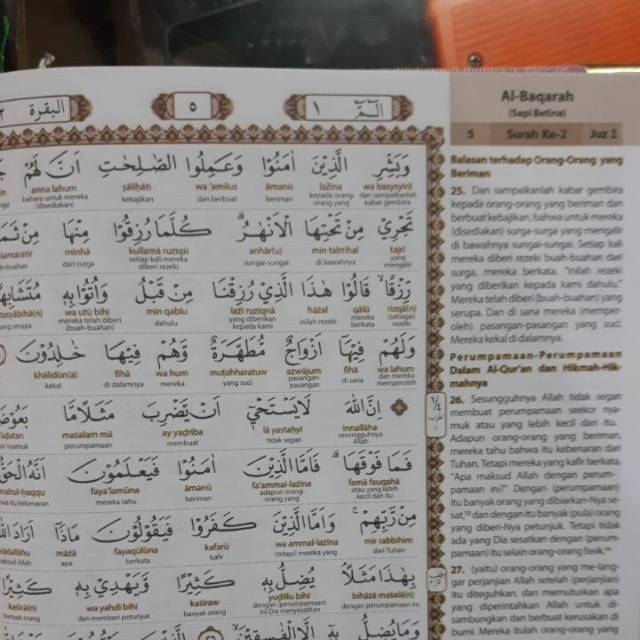 البقرة
٥
الٓمّٓ ١
وَبَشِّرِ الَّذِيْنَ اٰمَنُوْا وَعَمِلُوا الصّٰلِحٰتِ اَنَّ لَهُمْ
anna lahum ṣāliḥāti wa ‘amilus āmanū lażīna wa basysyiril
bahwa untuk mereka kebajikan dan berbuat beriman kepada orang- dan sampaikanlah
(disediakan) orang yang kabar gembira
تَجْرِيْ مِنْ تَحْتِهَا الْاَنْهٰرُ ۗ كُلَّمَا رُزِقُوْا مِنْهَا مِنْ
minhā kullamā ruziqū anhār(u) min taḥtihal tajrī
dari surga setiap kali mereka sungai-sungai di bawahnya yang
diberi rezeki mengalir
رِّزْقًا ۙ قَالُوْا هٰذَا الَّذِيْ رُزِقْنَا مِنْ قَبْلُ وَاُتُوْا بِهٖ
wa utū bihī min qablu lażī ruziqnā hāżal qālū rizqā(n)
mereka telah diberi dahulu yang diberikan inilah rezeki mereka rezeki
(buah-buahan) kepada kami berkata
وَلَهُمْ فِيْهَآ اَزْوَاجٌ مُّطَهَّرَةٌ وَّهُمْ فِيْهَا خٰلِدُوْنَ
khālidūn(a) fīhā wa hum muṭahharatuw azwājum fīhā wa lahum
kekal di dalamnya mereka yang suci pasangan- di sana dan mereka
pasangan memperoleh
اِنَّ اللّٰهَ لَا يَسْتَحْيٖٓ اَنْ يَّضْرِبَ مَثَلًا مَّا
maṡalam mā ay yaḍriba lā yastaḥyī innallāha
perumpamaan membuat tidak segan sesungguhnya
Allah
فَمَا فَوْقَهَا ۗ فَاَمَّا الَّذِيْنَ اٰمَنُوْا فَيَعْلَمُوْنَ اَنَّهُ الْحَقُّ
faya‘lamūna āmanū fa’ammal-lażīna famā fauqahā
mereka tahu beriman adapun orang- atau yang lebih
orang yang kecil dari itu
مِنْ رَّبِّهِمْ ۚ وَاَمَّا الَّذِيْنَ كَفَرُوْا فَيَقُوْلُوْنَ مَاذَآ اَرَادَ اللّٰهُ
māżā fayaqūlūna kafarū wa ammal-lażīna mir rabbihim
apa berkata kafir (tetapi) mereka yang dari Tuhan
بِهٰذَا مَثَلًا ۘ يُضِلُّ بِهٖ كَثِيْرًا وَّيَهْدِيْ بِهٖ كَثِيْرًا
kaṡīrā(n) wa yahdī bihī kaṡīraw yuḍillu bihī bihāżā maṡalā(n)
banyak orang dan memberi petunjuk banyak orang dengan (perumpamaan) dengan perumpamaan ini
وَمَا يُضِلُّ بِهٖٓ اِلَّا الْفٰسِقِيْنَ
Al-Baqarah
(Sapi Betina)
5 Surah Ke-2 Juz 1
Balasan terhadap Orang-Orang yang
Beriman
25. Dan sampaikanlah kabar gembira
kepada orang-orang yang beriman dan
berbuat kebajikan, bahwa untuk mereka
(disediakan) surga-surga yang mengalir
di bawahnya sungai-sungai. Setiap kali
mereka diberi rezeki buah-buahan dari
surga, mereka berkata, "Inilah rezeki
yang diberikan kepada kami dahulu."
Mereka telah diberi (buah-buahan) yang
serupa. Dan di sana mereka (memper-
oleh) pasangan-pasangan yang suci.
Mereka kekal di dalamnya.
Perumpamaan-Perumpamaan
Dalam Al-Qur'an dan Hikmah-Hik-
mahnya
26. Sesungguhnya Allah tidak segan
membuat perumpamaan seekor nya-
muk atau yang lebih kecil dari itu.
Adapun orang-orang yang beriman,
mereka tahu bahwa itu kebenaran dari
Tuhan. Tetapi mereka yang kafir berkata,
"Apa maksud Allah dengan perum-
pamaan ini?" Dengan (perumpamaan)
itu banyak orang yang dibiarkan-Nya se-
sat," dan dengan itu banyak (pula) orang
yang diberi-Nya petunjuk. Tetapi tidak
ada yang Dia sesatkan dengan (perum-
pamaan) itu selain orang-orang fasik,"
27. (yaitu) orang-orang yang me-lang-
gar perjanjian Allah setelah (perjanjian)
itu diteguhkan, dan memutuskan apa
yang diperintahkan Allah untuk di-
sambungkan dan berbuat kerusakan di
bumi. Mereka itulah orang-orang yang